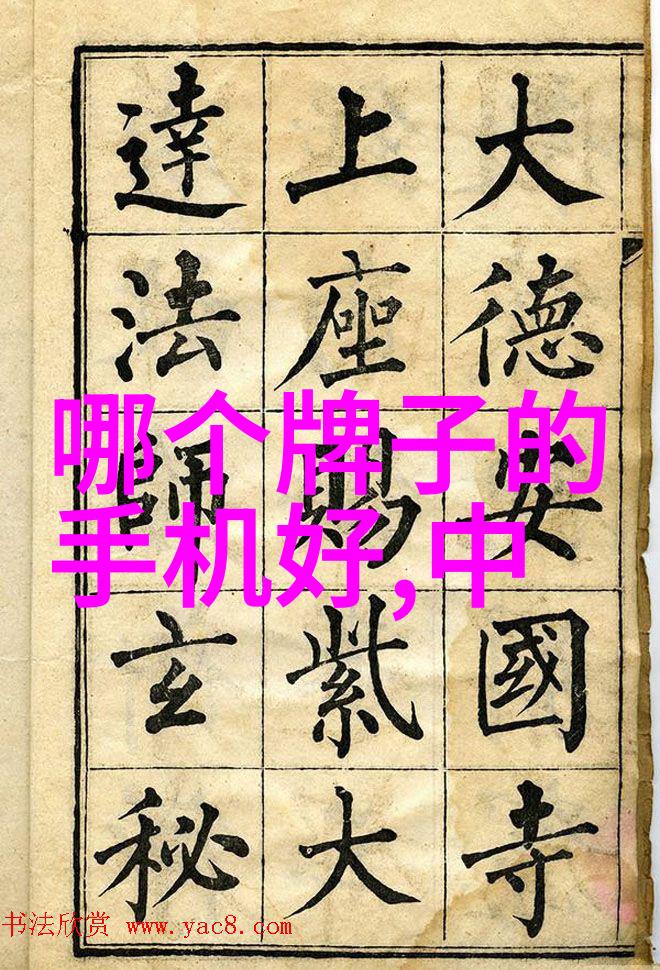 大德安國寺
上座賜紫大
達法師玄秘
哪个牌子的
手机好,中
书法欣赏 www.yac8.com